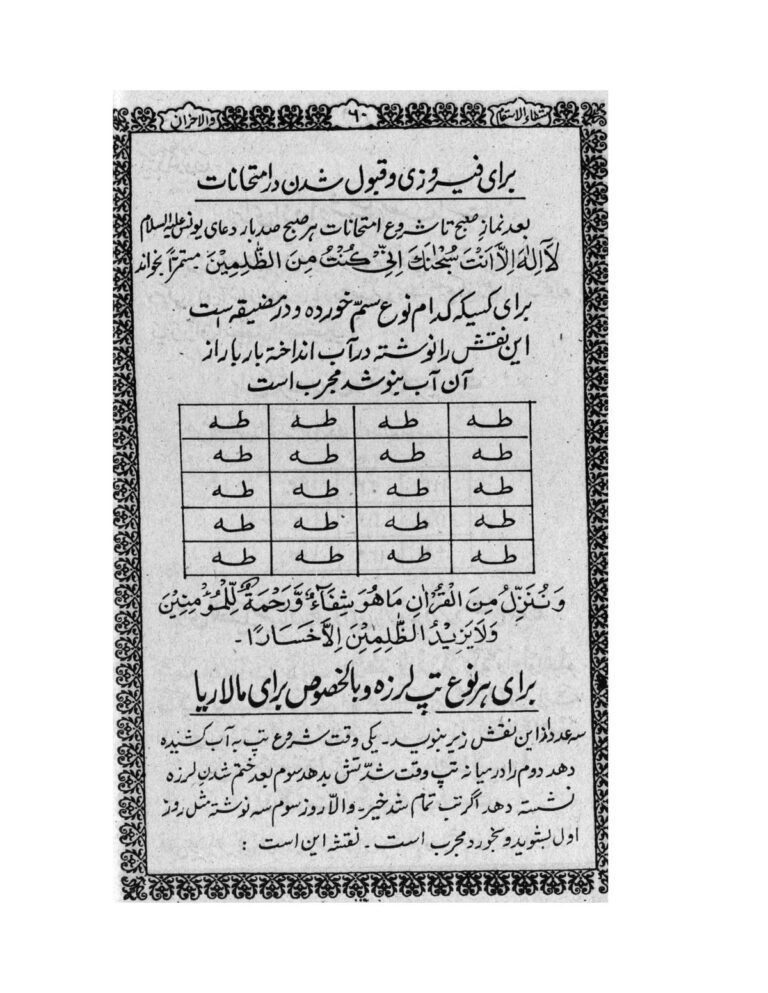 شفاء الاسقام ۶۰ والاحزان
برای فیروزی و قبول شدن در امتحانات
بعد نماز صبح تا شروع امتحانات هر صبح صد بار دعای یونس علیه السلام
لَآ اِلٰهَ اِلَّآ اَنْتَ سُبْحٰنَكَ اِنِّیْ كُنْتُ مِنَ الظّٰلِمِیْنَ مستمراً بخواند
برای کسیکه کدام نوع سمّ خورده و در مضیقه است
این نقش را نوشته در آب انداخته بار بار از
آن آب بنوشد مجرب است
طـه طـه طـه طـه
طـه طـه طـه طـه
طـه طـه طـه طـه
طـه طـه طـه طـه
طـه طـه طـه طـه
وَنُنَزِّلُ مِنَ الْقُرْاٰنِ مَا هُوَ شِفَآءٌ وَّرَحْمَةٌ لِّلْمُؤْمِنِیْنَ
وَلَا یَزِیْدُ الظّٰلِمِیْنَ اِلَّا خَسَارًا -
برای هر نوع تپ لرزه و بالخصوص برای مالاریا
سه عدد از این نقش زیر بنوید - یکی وقت شروع تپ به آب کشیده
دهد دوم را در میانه تپ وقت شدّتش بدهد سوم بعد ختم شدن لرزه
نشسته دهد اگر تب تمام شد خیر - والّا روز سوم سه نوشته مثل روز
اول بشوید و بخورد مجرب است - نقشه این است :